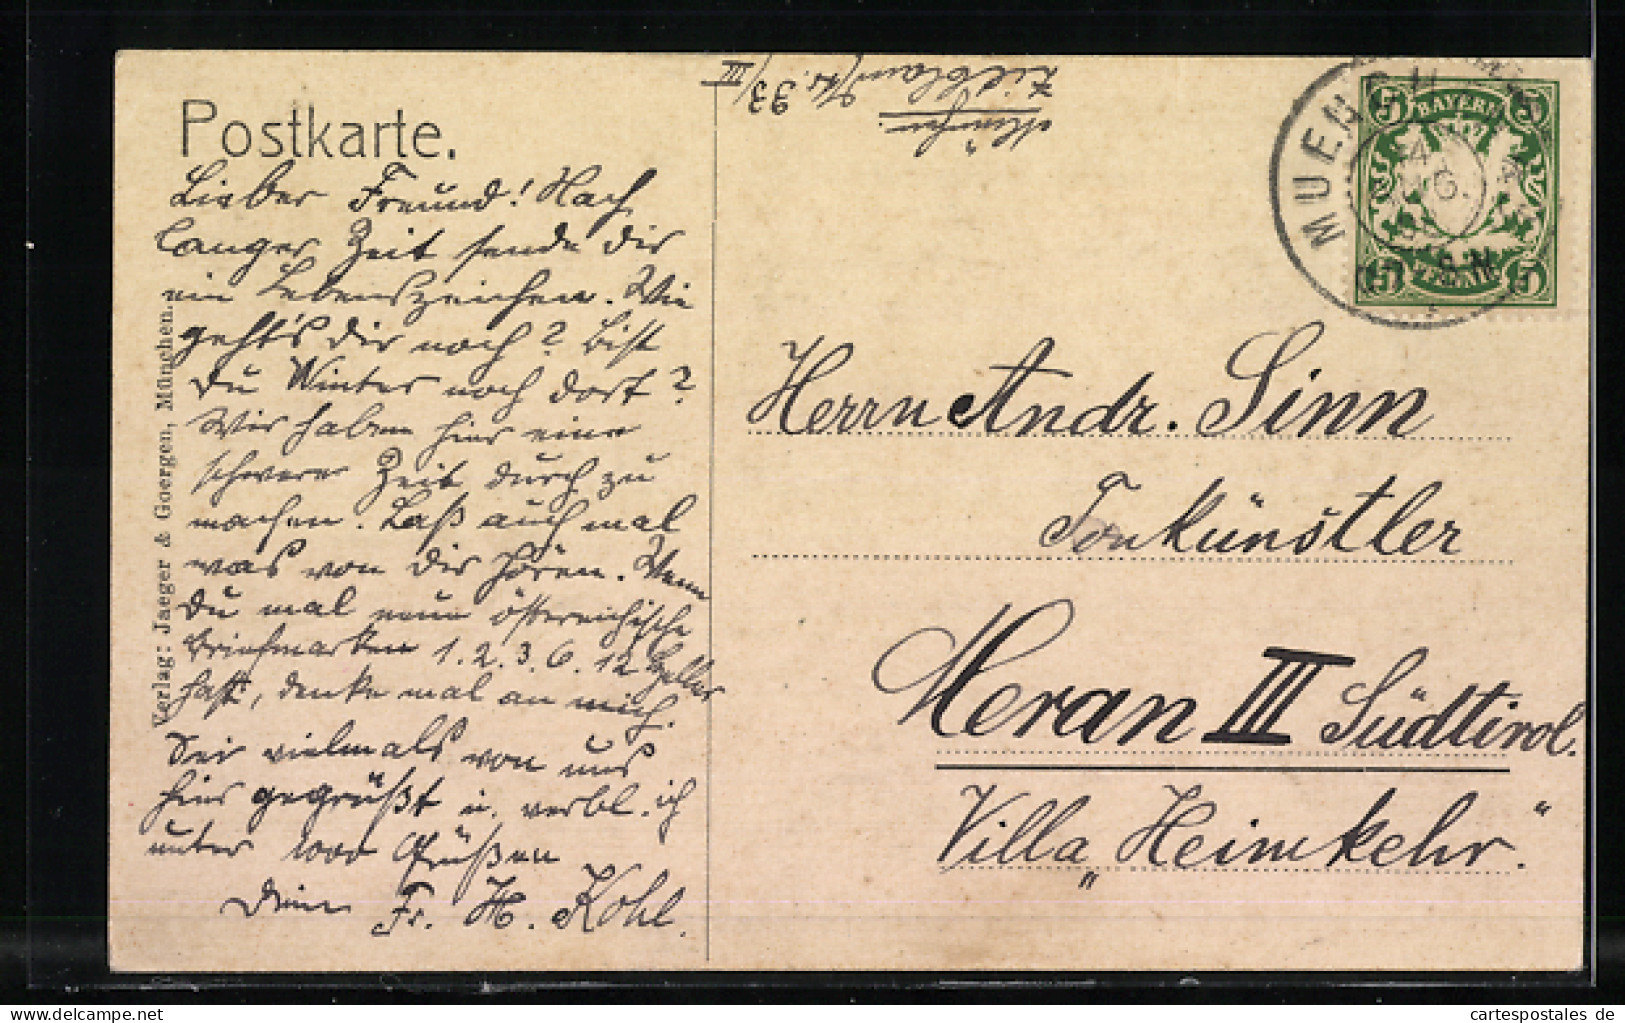 Postkarte.
Lieber Freund! Nach
langer Zeit sende dir
ein Lebenszeichen. Wie
geht's dir noch? Bist
du Winter noch dort?
Wir haben hier eine
schwere Zeit durch zu
machen. Laß auch mal
was von dir hören. Wenn
du mal neue österreichische
Briefmarken 1. 2. 3. 6. 12 Heller
hast, denke mal an mich.
Sei vielmals von uns
hier gegrüßt u. verbl. ich
unter 1000 Grüßen
Dein Fr. H. Kohl.
Verlag: Jaeger & Goergen, München.
München.
33/III
MUENCHEN
4
BAYERN
5 5
5 5
Herrn Andr. Sinn
Tonkünstler
Meran III Südtirol.
Villa „Heimkehr."
cartespostales de